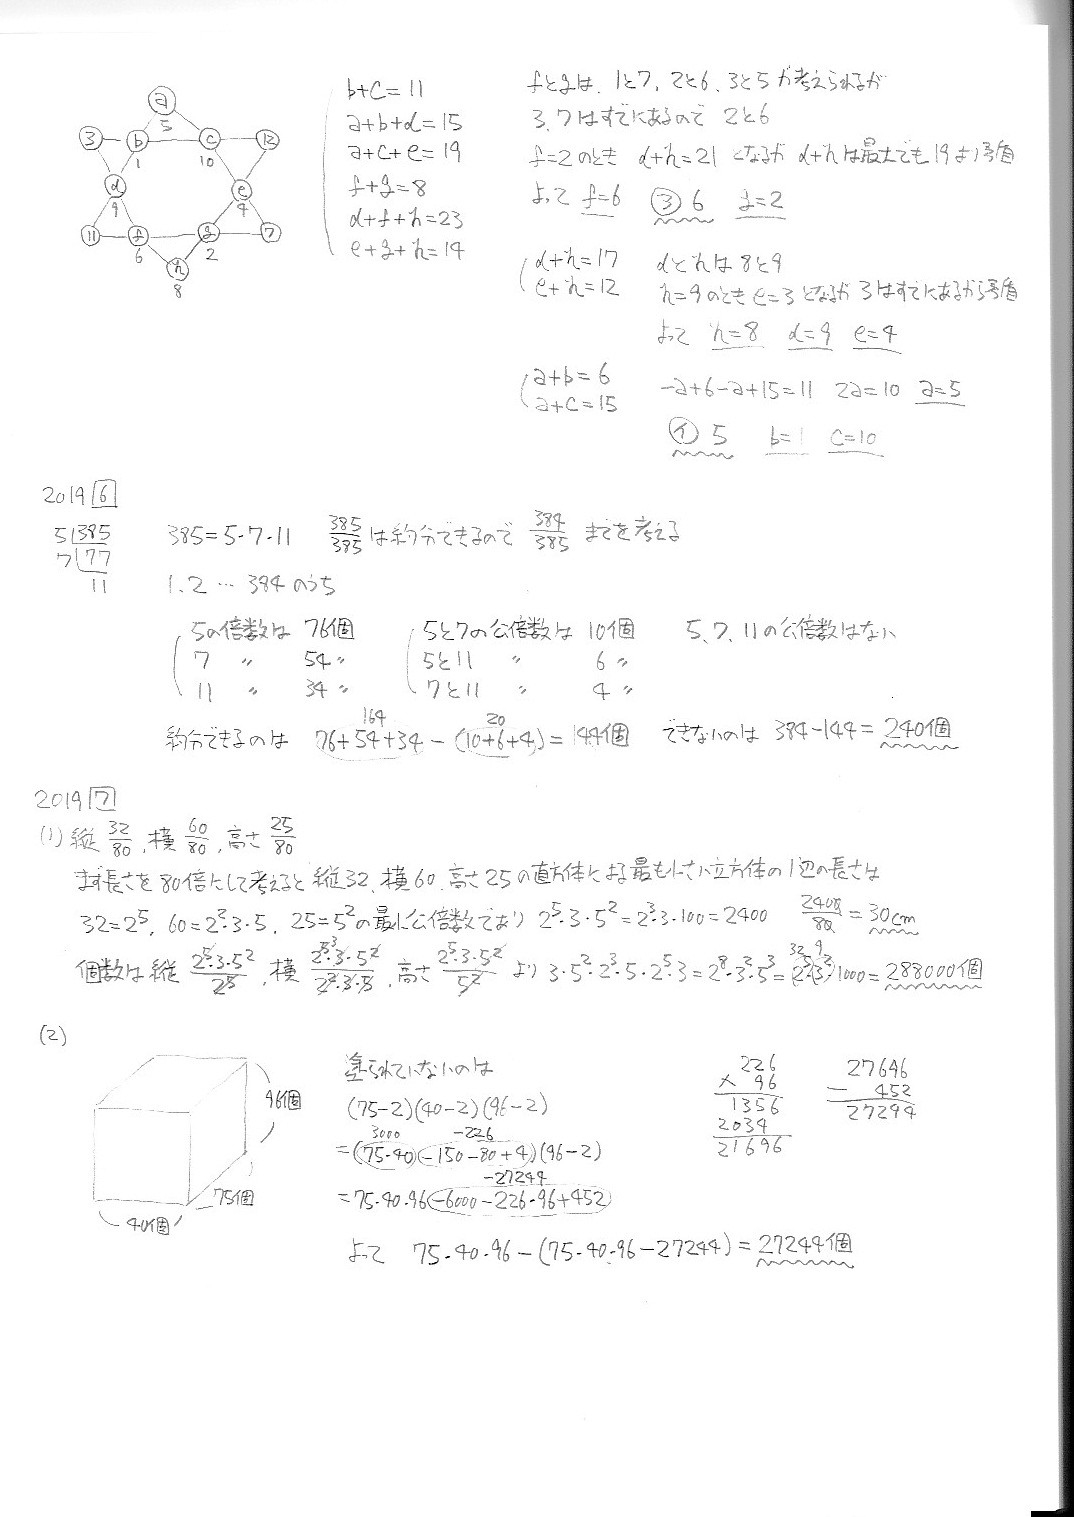 a
5
3
b
c
12
1
10
d
e
9
4
11
f
g
7
6
2
h
8
b+c=11
a+b+d=15
a+c+e=19
f+g=8
d+f+h=23
e+g+h=14
fとgは、1と7, 2と6, 3と5が考えられるが
3, 7はすでにあるので 2と6
f=2のとき d+h=21 となるが d+hは最大でも19より矛盾
よって f=6 ③ 6 g=2
d+h=17 dとhは8と9
e+h=12 h=9のときe=3となるが3はすでにあるから矛盾
よって h=8 d=9 e=4
a+b=6
a+c=15
-a+6-a+15=11 2a=10 a=5
① 5 b=1 c=10
2019 6
5 385
7 77
11
385=5·7·11 385/385 は約分できるので 384/385 までを考える
1. 2 … 384 のうち
5の倍数は 76個 5と7の公倍数は 10個 5, 7, 11の公倍数はない
7 〃 54〃 5と11 〃 6〃
11 〃 34〃 7と11 〃 4〃
164 20
約分できるのは 76+54+34-(10+6+4)=144個 できないのは 384-144=240個
2019 7
(1) 縦 32/80, 横 60/80, 高さ 25/80
まず長さを80倍にして考えると 縦32, 横60, 高さ25の直方体による最も小さい立方体の1辺の長さは
32=2⁵, 60=2²·3·5, 25=5²の最小公倍数であり 2⁵·3·5²=2³·3·100=2400 2400/80=30cm
個数は 縦 2⁵·3·5²/2⁵, 横 2⁵·3·5²/2²·3·5, 高さ 2⁵·3·5²/5² より 3·5²·2³·5·2⁵·3=2⁸·3²·5³=2⁵·3²·1000=288000個
(2)
96個
75個
40個
塗られていないのは
(75-2)(40-2)(96-2)
3000 -226
=(75·40-150-80+4)(96-2)
-27244
=75·40·96-6000-226·96+452
よって 75·40·96-(75·40·96-27244)=27244個
226
× 96
1356
2034
21696
27696
- 452
27244